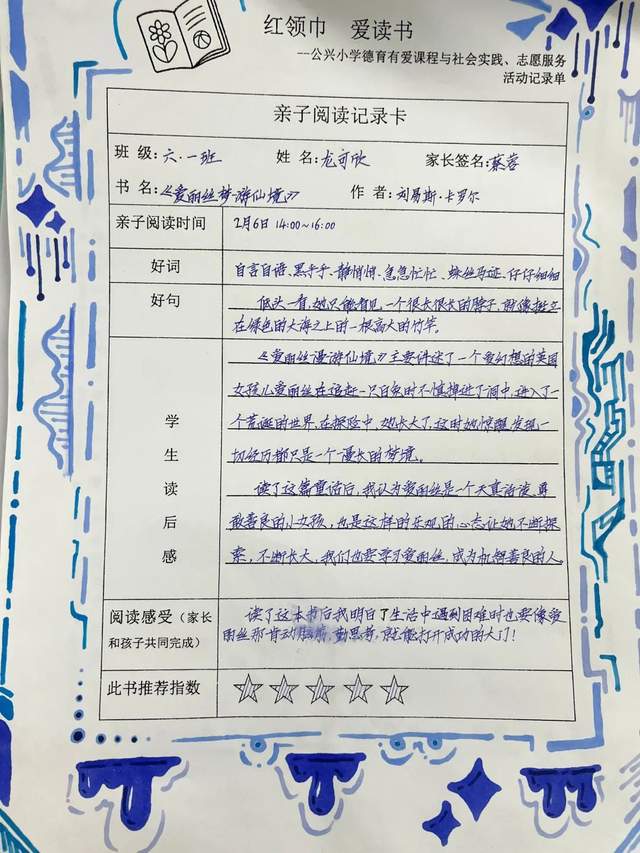 红领巾 爱读书
---公兴小学德育有爱课程与社会实践、志愿服务
活动记录单
亲子阅读记录卡
班 级:六.一班 姓 名:龙可欣 家长签名:蔡蓉
书 名:《爱丽丝梦游仙境》 作 者:刘易斯·卡罗尔
亲子阅读时间 2月6日 14:00~16:00
好词 自言自语、黑乎乎、静悄悄、急急忙忙、蛛丝马迹、仔仔细细
好句 低头一看,她只能看见一个很长很长的脖子,就像挺立
在绿色的大海之上的一根高大的竹竿。
学生读后感
《爱丽丝漫游仙境》主要讲述了一个爱幻想的英国
女孩儿爱丽丝在追赶一只白兔时不慎掉进了洞中,进入了一
个荒诞的世界,在探险中,她长大了,这时她惊醒发现一
切经历都只是一个漫长的梦境。
读了这篇童话后,我认为爱丽丝是一个天真活泼、勇
敢善良的小女孩,也是这样的乐观的心态让她不断探
索,不断长大,我们也要学习爱丽丝,成为机智善良的人。
阅读感受(家长
和孩子共同完成)
读了这本书后我明白了生活中遇到困难时也要像爱
丽丝那肯动脑筋,勤思考,就能打开成功的大门!
此书推荐指数